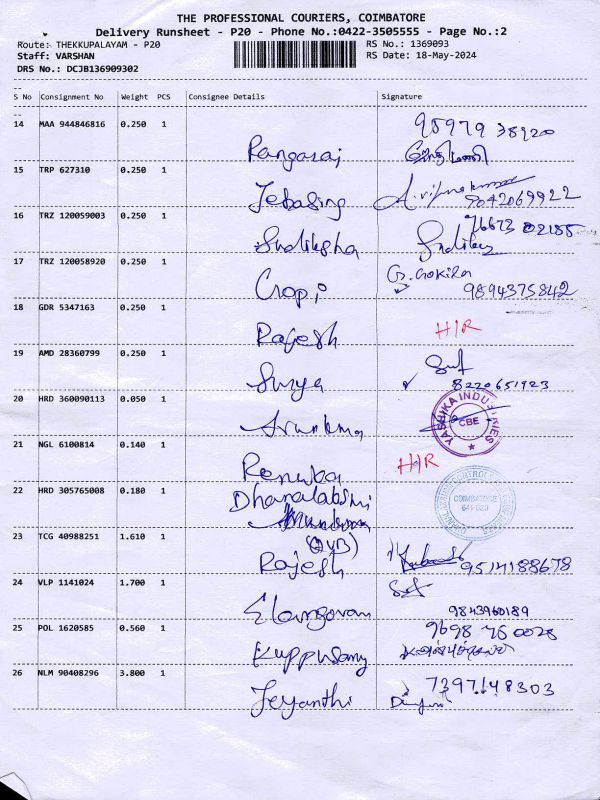 THE PROFESSIONAL COURIERS, COIMBATORE
Delivery Runsheet - P20 - Phone No.:0422-3505555 - Page No.:2
Route: THEKKUPALAYAM - P20
RS No.: 1369093
Staff: VARSHAN
RS Date: 18-May-2024
DRS No.: DCJB136909302
S No Consignment No Weight PCS Consignee Details Signature
14 MAA 944846816 0.250 1
Rangaraj
15 TRP 627310 0.250 1
Jebasing 9042069922
16 TRZ 120059003 0.250 1
17 TRZ 120058920 0.250 1 G. Gokila
Gopi 9894375842
18 GDR 5347163 0.250 1
Rajesh H/R
19 AMD 28360799 0.250 1
Surya 8220651923
20 HRD 360090113 0.050 1
YASHIKA INDUSTRIES
CBE
21 NGL 6100814 0.140 1
Renuka H/R
22 HRD 305765008 0.180 1
COIMBATORE
23 TCG 40988251 1.610 1
Rajesh 9514188678
24 VLP 1141024 1.700 1
Elangovan 9843960189
25 POL 1620585 0.560 1
Kuppusamy
26 NLM 90408296 3.800 1
7397148303
Jeyanthi